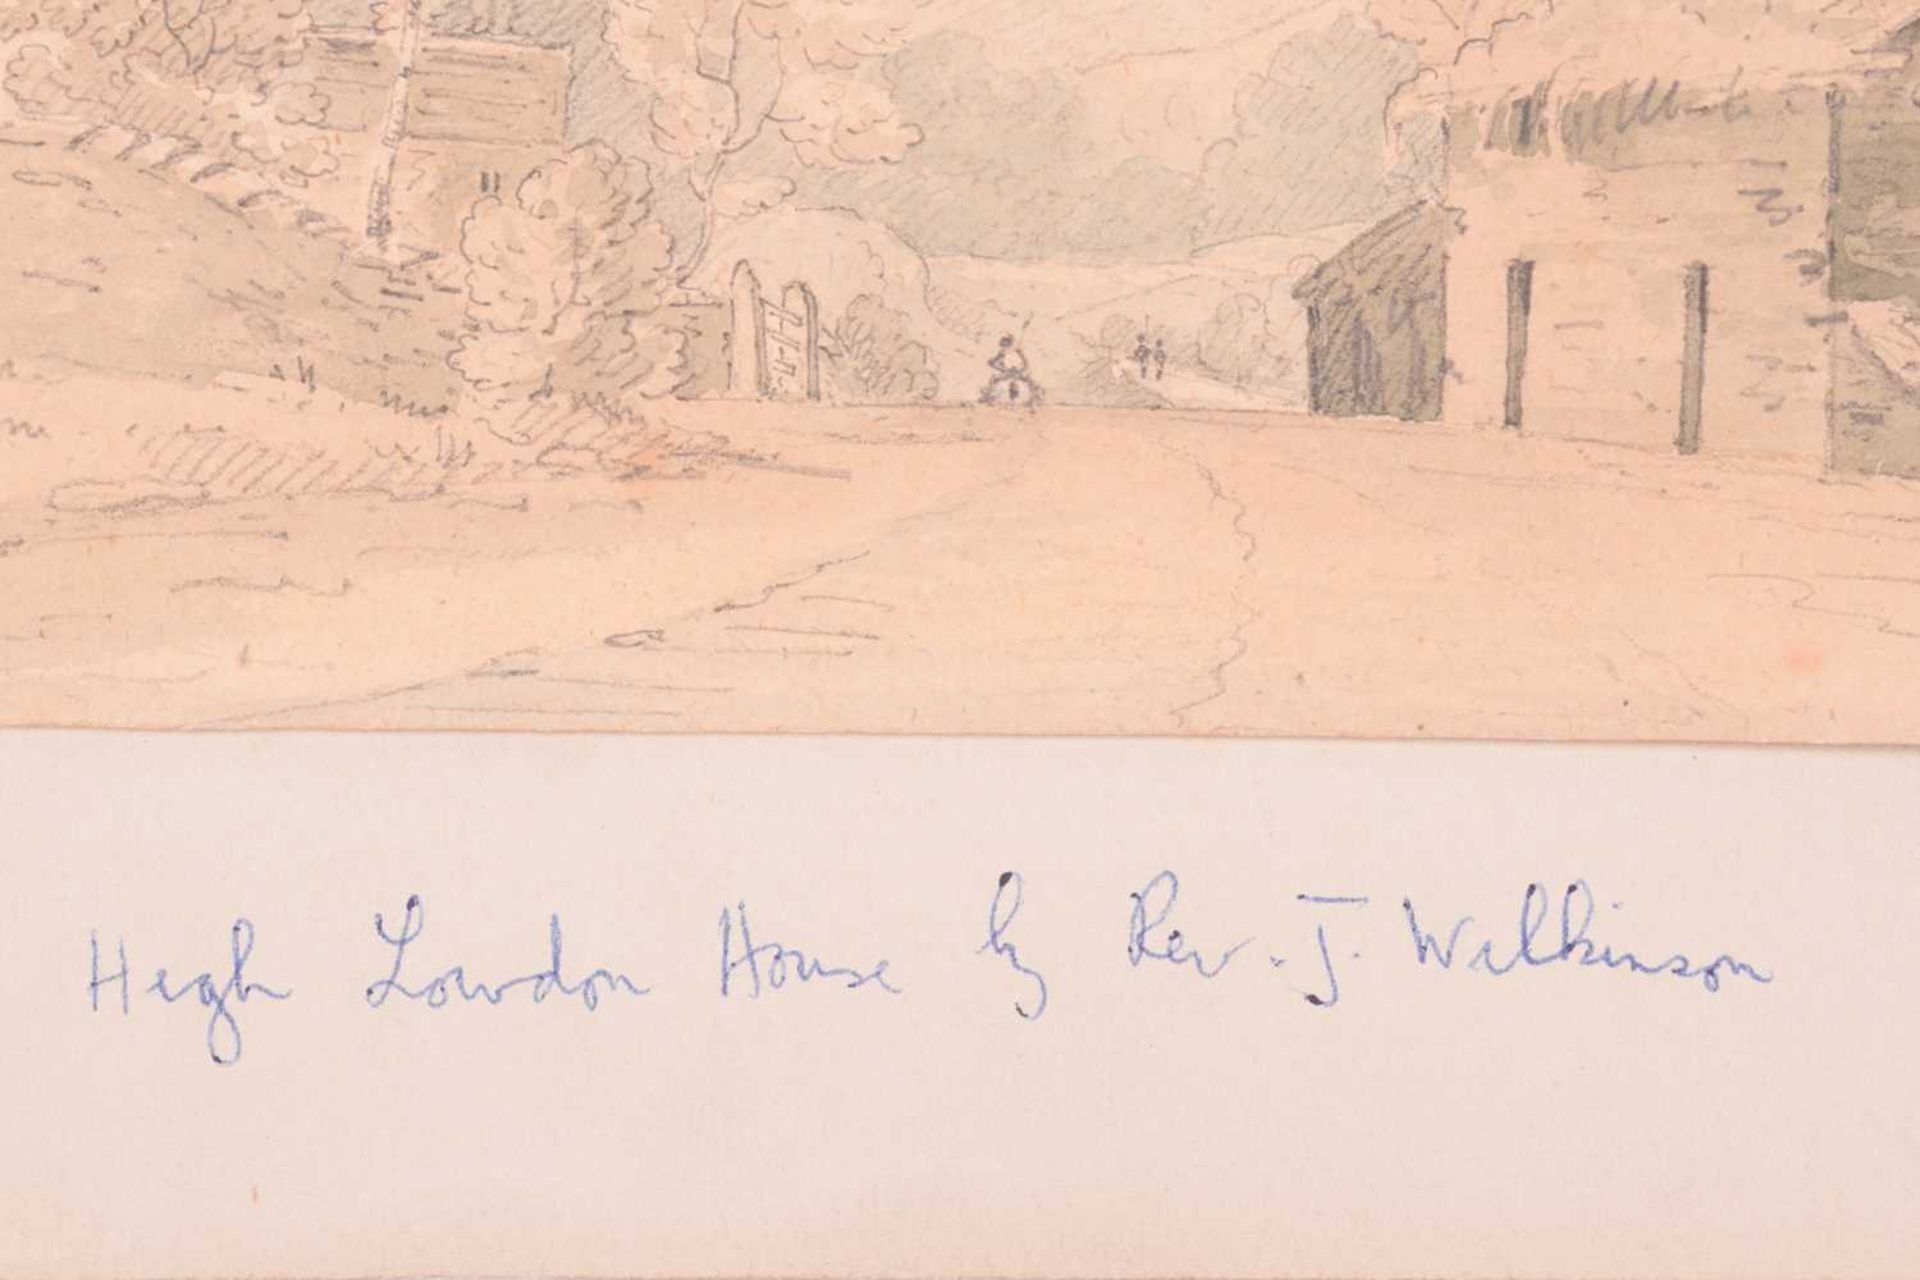 High Lowdon House by Rev. J. Wilkinson